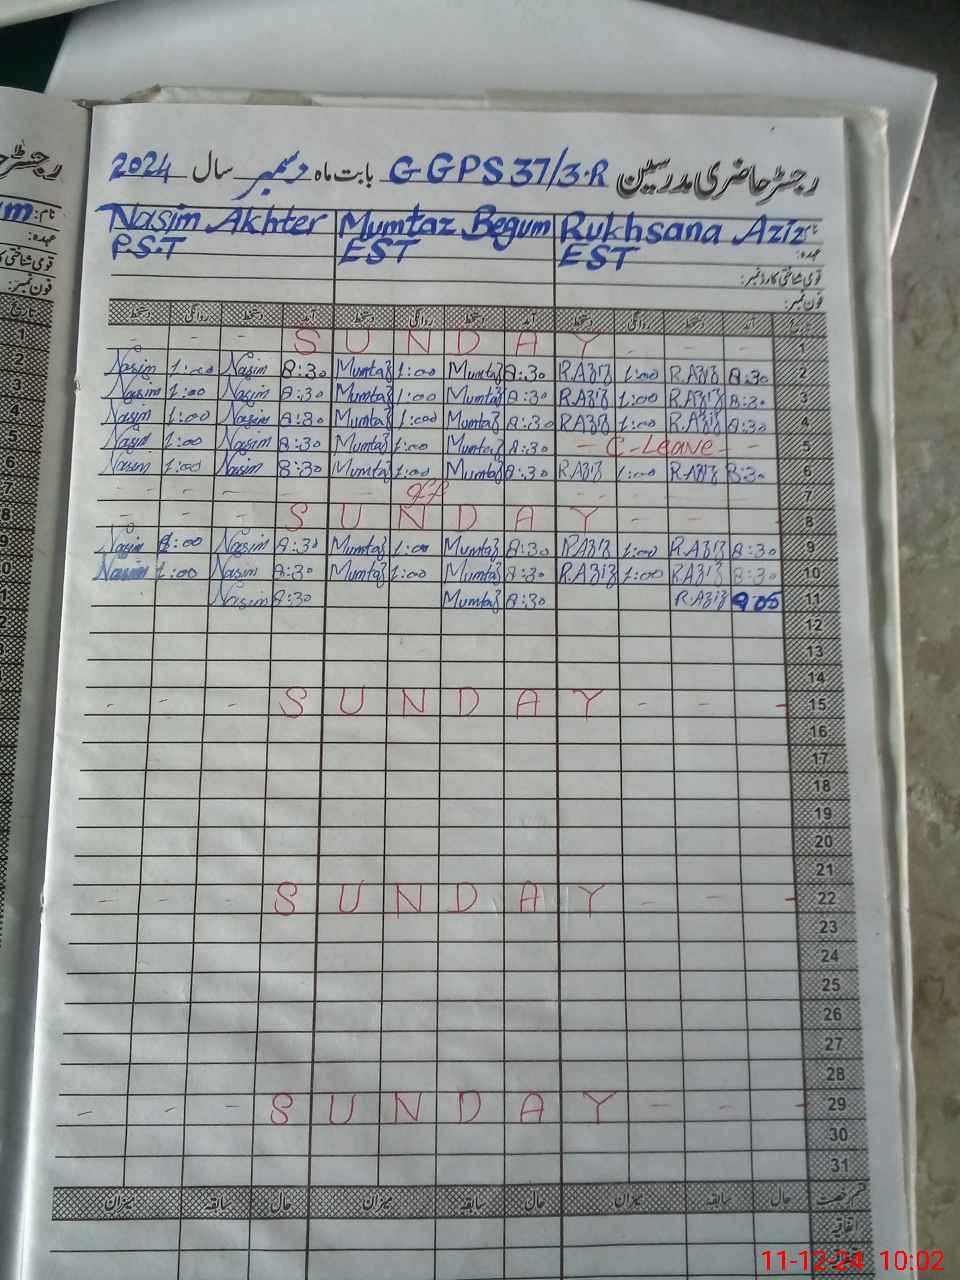 رجسٹر حاضری مدرسین GGPS 37/3.R بابت ماہ دسمبر سال 2024
نام: Nasim Akhter Mumtaz Begum Rukhsana Aziz
عہدہ: P.S.T EST EST
قومی شناختی کارڈ نمبر:
فون نمبر:
تاریخ آمد دستخط روانگی دستخط آمد دستخط روانگی دستخط آمد دستخط روانگی دستخط
- - - S U N D A Y - - -
Nasim 1:00 Nasim 8:30 Mumtaz 1:00 Mumtaz 8:30 R.Aziz 1:00 R.Aziz 8:30 2
Nasim 1:00 Nasim 8:30 Mumtaz 1:00 Mumtaz 8:30 R.Aziz 1:00 R.Aziz 8:30 3
Nasim 1:00 Nasim 8:30 Mumtaz 1:00 Mumtaz 8:30 R.Aziz 1:00 R.Aziz 8:30 4
Nasim 1:00 Nasim 8:30 Mumtaz 1:00 Mumtaz 8:30 - C-Leave - - 5
Nasim 1:00 Nasim 8:30 Mumtaz 1:00 Mumtaz 8:30 R.Aziz 1:00 R.Aziz 8:30 6
- - - - off - - - 7
- - - S U N D A Y - - 8
Nasim 1:00 Nasim 8:30 Mumtaz 1:00 Mumtaz 8:30 R.Aziz 1:00 R.Aziz 8:30 9
Nasim 1:00 Nasim 8:30 Mumtaz 1:00 Mumtaz 8:30 R.Aziz 1:00 R.Aziz 8:30 10
Nasim 8:30 Mumtaz 8:30 R.Aziz 9:05 11
12
13
14
- - - S U N D A Y - - - 15
16
17
18
19
20
21
- - - S U N D A Y - - - 22
23
24
25
26
27
28
- - - S U N D A Y - - - 29
30
31
قسم رخصت حال سابقہ میزان حال سابقہ میزان حال سابقہ میزان
اتفاقیہ
11-12-24 10:02